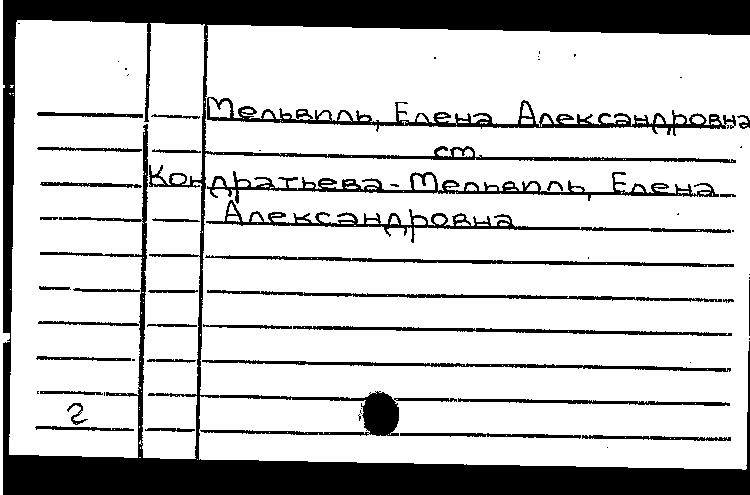 Мельвиль, Елена Александровна
ст.
Кондратьева-Мельвиль, Елена
Александровна
г